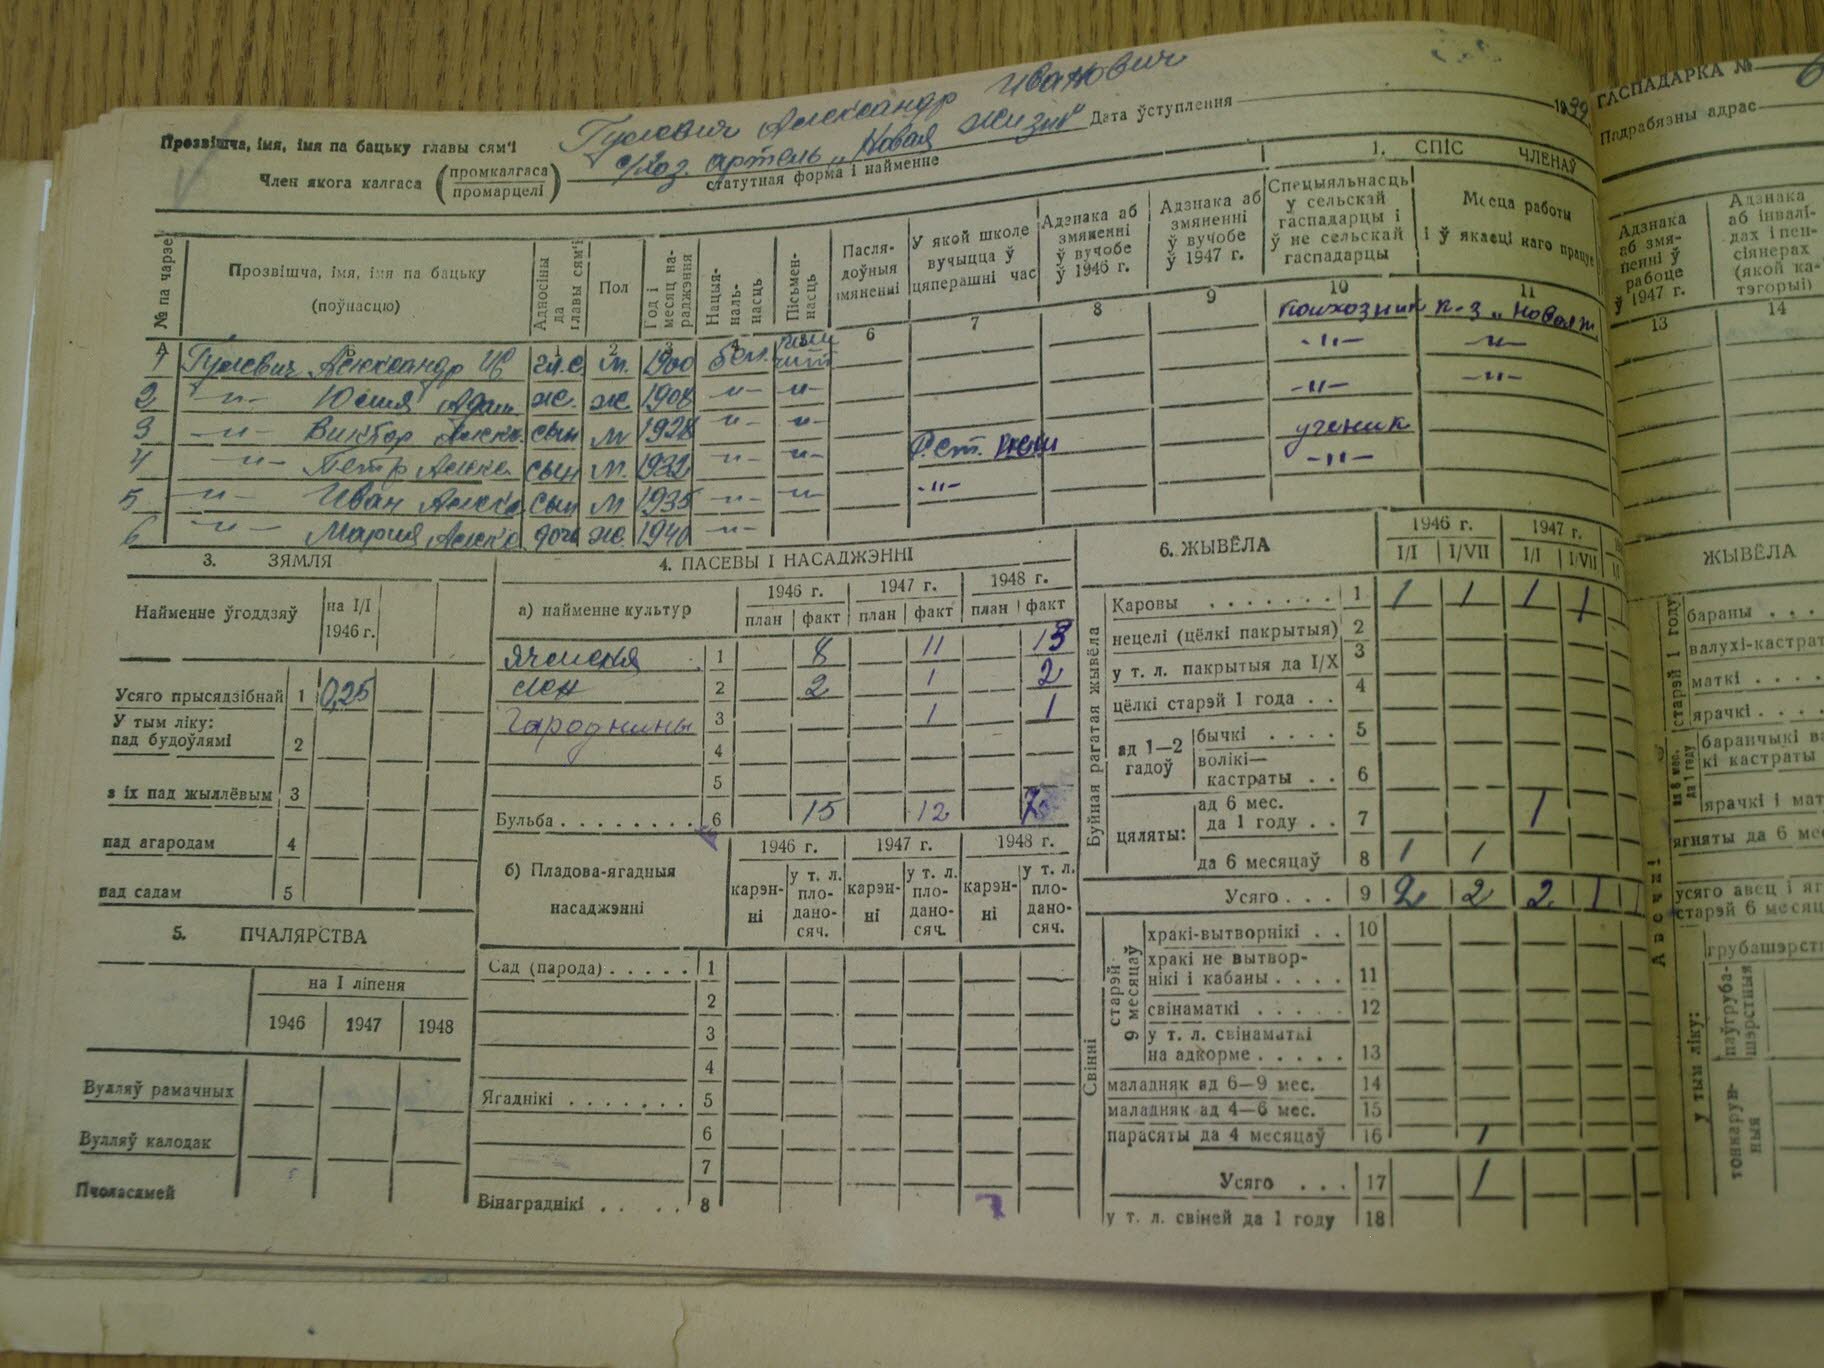 Гулевич Александр Иванович
Прозвішча, імя, імя па бацьку главы сям'і
с/хоз. артель „Новая жизнь"
Дата ўступлення
1939
Член якога калгаса (промкалгаса / промарцелі)
статутная форма і найменне
1. СПІС ЧЛЕНАЎ
№ па чарзе
Прозвішча, імя, імя па бацьку (поўнасцю)
Адносіны да главы сям'і
Пол
Год і месяц нараджэння
Нацыянальнасць
Пісьменнасць
У якой школе вучыцца ў цяперашні час
Адзнака аб змяненні ў вучобе ў 1946 г.
Адзнака аб змяненні ў вучобе ў 1947 г.
Спецыяльнасць у сельскай гаспадарцы і ў не сельскай гаспадарцы
Месца работы і ў якасці каго працуе
А 1 2 3 4 6 7 8 9 10 11
1 Гулевич Александр Ив гл.с м. 1900 бел.
2 -"- Адам. ж. ж 1908 -"- -"- -"- -"-
3 -"- Виктор Алекс. сын м 1928 -"- -"- -"- -"-
4 -"- Петр Алекс. сын м. 1932 -"- -"- ученик
5 -"- Иван Алекс. сын м 1935 -"- -"- -"- -"-
6 -"- Мария Алекс. дочь ж. 1940 -"-
3. ЗЯМЛЯ
Найменне ўгоддзяў на I/I 1946 г.
Усяго прысядзібнай 1 0,25
У тым ліку:
пад будоўлямі 2
з іх пад жыллёвым 3
пад агародам 4
пад садам 5
5. ПЧАЛЯРСТВА
на I ліпеня
1946 1947 1948
Вулляў рамачных
Вулляў калодак
Пчоласямей
4. ПАСЕВЫ І НАСАДЖЭННІ
а) найменне культур
1946 г. 1947 г. 1948 г.
план факт план факт план факт
1 8 11 13
лён 2 2 1 2
Гародніны 3 1 1
4
5
Бульба 6 15 12
б) Пладова-ягадныя насаджэнні
1946 г. 1947 г. 1948 г.
карэнні у т. л. пладаносяч. карэнні у т. л. пладаносяч. карэнні у т. л. пладаносяч.
Сад (парода) 1
2
3
4
Ягаднікі 5
6
7
Вінаграднікі 8
6. ЖЫВЁЛА
1946 г. 1947 г.
I/I I/VII I/I I/VII
Буйная рагатая жывёла
Каровы 1 1 1 1 1
нецелі (цёлкі пакрытыя) 2
у т. л. пакрытыя да I/X 3
цёлкі старэй 1 года 4
ад 1—2 гадоў
бычкі 5
волікі—кастраты 6
цяляты:
ад 6 мес. да 1 году 7 1
да 6 месяцаў 8 1 1
Усяго 9 2 2 2 1
Свінні
старэй 9 месяцаў
хракі-вытворнікі 10
хракі не вытворнікі і кабаны 11
свінаматкі 12
у т. л. свінаматкі на адкорме 13
маладняк ад 6—9 мес. 14
маладняк ад 4—6 мес. 15
парасяты да 4 месяцаў 16 1
Усяго 17 1
у т. л. свіней да 1 году 18
ГАСПАДАРКА № 6
Падрабязны адрас
Адзнака аб змяненні ў рабоце ў 1947 г.
13 14
ЖЫВЁЛА
старэй 1 году
бараны
маткі
ярачкі
ад 6 мес. да 1 году
у тым ліку: